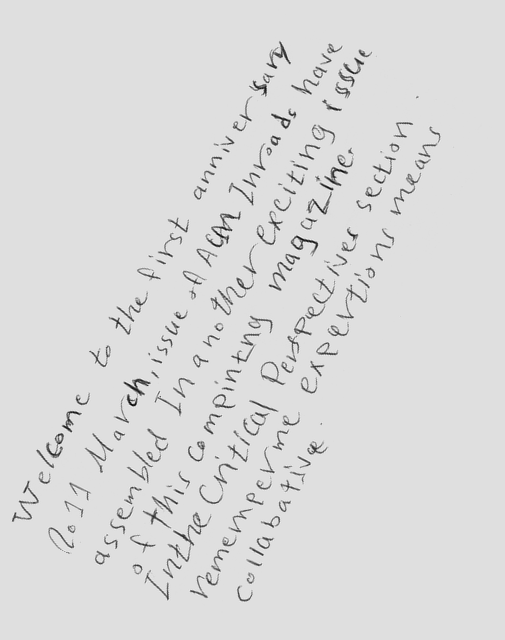 Welcome to the first anniversary
2011 March, issue of ACM Inroads have
assembled In another exciting issue
of this compinting magazine.
Inthe Critical Perspectives section.
rememperme expertions means
collabative.